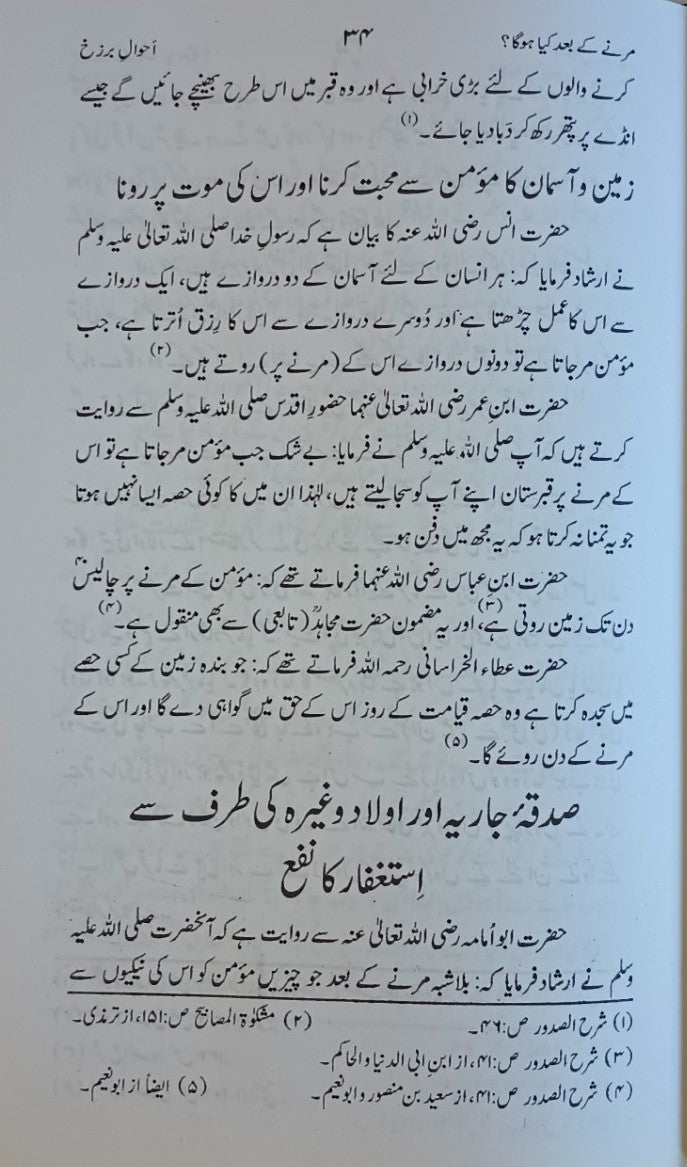 مرنے کے بعد کیا ہوگا؟ ۳۴ اَحوالِ برزخ
کرنے والوں کے لئے بڑی خرابی ہے اور وہ قبر میں اس طرح بھینچے جائیں گے جیسے
انڈے پر پتھر رکھ کر دَبا دیا جائے۔(۱)
زمین و آسمان کا مؤمن سے محبت کرنا اور اس کی موت پر رونا
حضرت انس رضی اللہ عنہ کا بیان ہے کہ رسولِ خدا صلی اللہ تعالیٰ علیہ وسلم
نے ارشاد فرمایا کہ: ہر انسان کے لئے آسمان کے دو دروازے ہیں، ایک دروازے
سے اس کا عمل چڑھتا ہے اور دُوسرے دروازے سے اس کا رِزق اُترتا ہے، جب
مؤمن مرجاتا ہے تو دونوں دروازے اس کے (مرنے پر) روتے ہیں۔(۲)
حضرت ابنِ عمر رضی اللہ تعالیٰ عنہما حضورِ اقدس صلی اللہ علیہ وسلم سے روایت
کرتے ہیں کہ آپ صلی اللہ علیہ وسلم نے فرمایا: بے شک جب مؤمن مرجاتا ہے تو اس
کے مرنے پر قبرستان اپنے آپ کو سجالیتے ہیں، لہٰذا ان میں کا کوئی حصہ ایسا نہیں ہوتا
جو یہ تمنا نہ کرتا ہو کہ یہ مجھ میں دفن ہو۔
حضرت ابنِ عباس رضی اللہ عنہما فرماتے تھے کہ: مؤمن کے مرنے پر چالیس۴۰
دن تک زمین روتی ہے،(۳) اور یہ مضمون حضرت مجاہدؒ (تابعی) سے بھی منقول ہے۔(۴)
حضرت عطاء الخراسانی رحمہ اللہ فرماتے تھے کہ: جو بندہ زمین کے کسی حصے
میں سجدہ کرتا ہے وہ حصہ قیامت کے روز اس کے حق میں گواہی دے گا اور اس کے
مرنے کے دن روئے گا۔(۵)
صدقۂ جاریہ اور اولاد وغیرہ کی طرف سے
اِستغفار کا نفع
حضرت ابو اُمامہ رضی اللہ تعالیٰ عنہ سے روایت ہے کہ آنحضرت صلی اللہ علیہ
وسلم نے ارشاد فرمایا کہ: بلاشبہ مرنے کے بعد جو چیزیں مؤمن کو اس کی نیکیوں سے
(۱) شرح الصدور ص:۴۶۔ (۲) مشکوٰۃ المصابیح ص:۱۵۱، از ترمذی۔
(۳) شرح الصدور ص:۴۱، از ابنِ ابی الدنیا والحاکم۔
(۴) شرح الصدور ص:۴۱، از سعید بن منصور و ابونعیم۔ (۵) ایضاً از ابونعیم۔